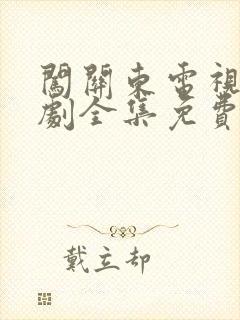 闖關東電視
劇全集免費
戴立却